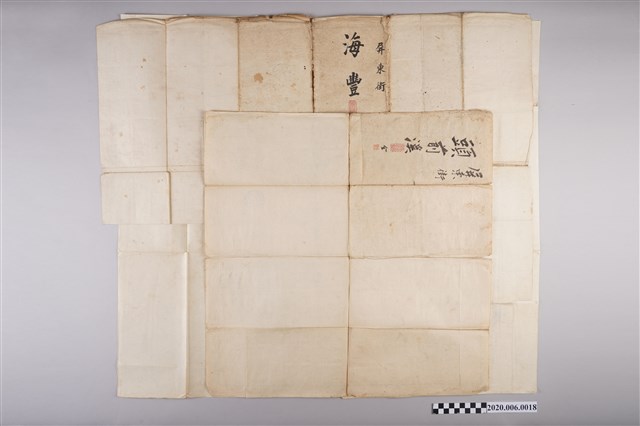 屏東街
海豐
屏東街
頭前溪
2020.006.0018